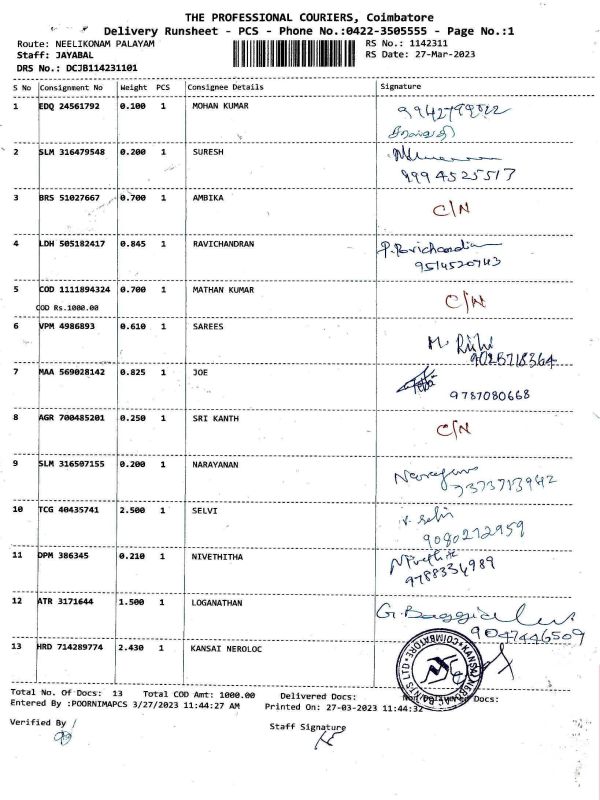 THE PROFESSIONAL COURIERS, Coimbatore
Delivery Runsheet - PCS - Phone No.:0422-3505555 - Page No.:1
Route: NEELIKONAM PALAYAM RS No.: 1142311
Staff: JAYABAL RS Date: 27-Mar-2023
DRS No.: DCJB114231101
S No Consignment No Weight PCS Consignee Details Signature
1 EDQ 24561792 0.100 1 MOHAN KUMAR
2 SLM 316479548 0.200 1 SURESH
9994525517
3 BRS 51027667 0.700 1 AMBIKA C/N
4 LDH 505182417 0.845 1 RAVICHANDRAN P. Ravichandran
9514520743
5 COD 1111894324 0.700 1 MATHAN KUMAR C/N
COD Rs.1000.00
6 VPM 4986893 0.610 1 SAREES M.
9025718364
7 MAA 569028142 0.825 1 JOE
9787080668
8 AGR 700485201 0.250 1 SRI KANTH C/N
9 SLM 316507155 0.200 1 NARAYANAN
7373713942
10 TCG 40435741 2.500 1 SELVI V. Selvi
9080272959
11 DPM 386345 0.210 1 NIVETHITHA
9788334989
12 ATR 3171644 1.500 1 LOGANATHAN
9047446509
13 HRD 714289774 2.430 1 KANSAI NEROLOC
Total No. Of Docs: 13 Total COD Amt: 1000.00 Delivered Docs: Docs:
Entered By :POORNIMAPCS 3/27/2023 11:44:27 AM Printed On: 27-03-2023 11:44:32
Verified By
Staff Signature